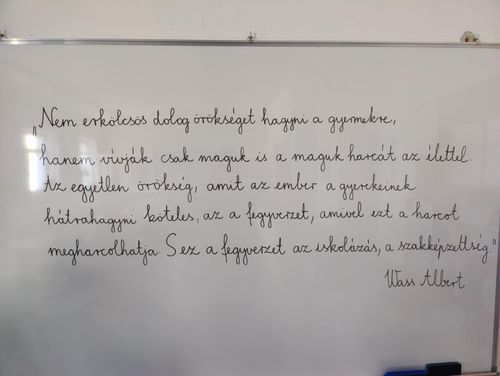 „Nem erkölcsös dolog örökséget hagyni a gyermekre,
hanem vívják csak maguk is a maguk harcát az élettel.
Az egyetlen örökség, amit az ember a gyerekeinek
hátrahagyni köteles, az a fegyverzet, amivel ezt a harcot
megharcolhatja. S ez a fegyverzet az iskolázás, a szakképzettség."
Wass Albert